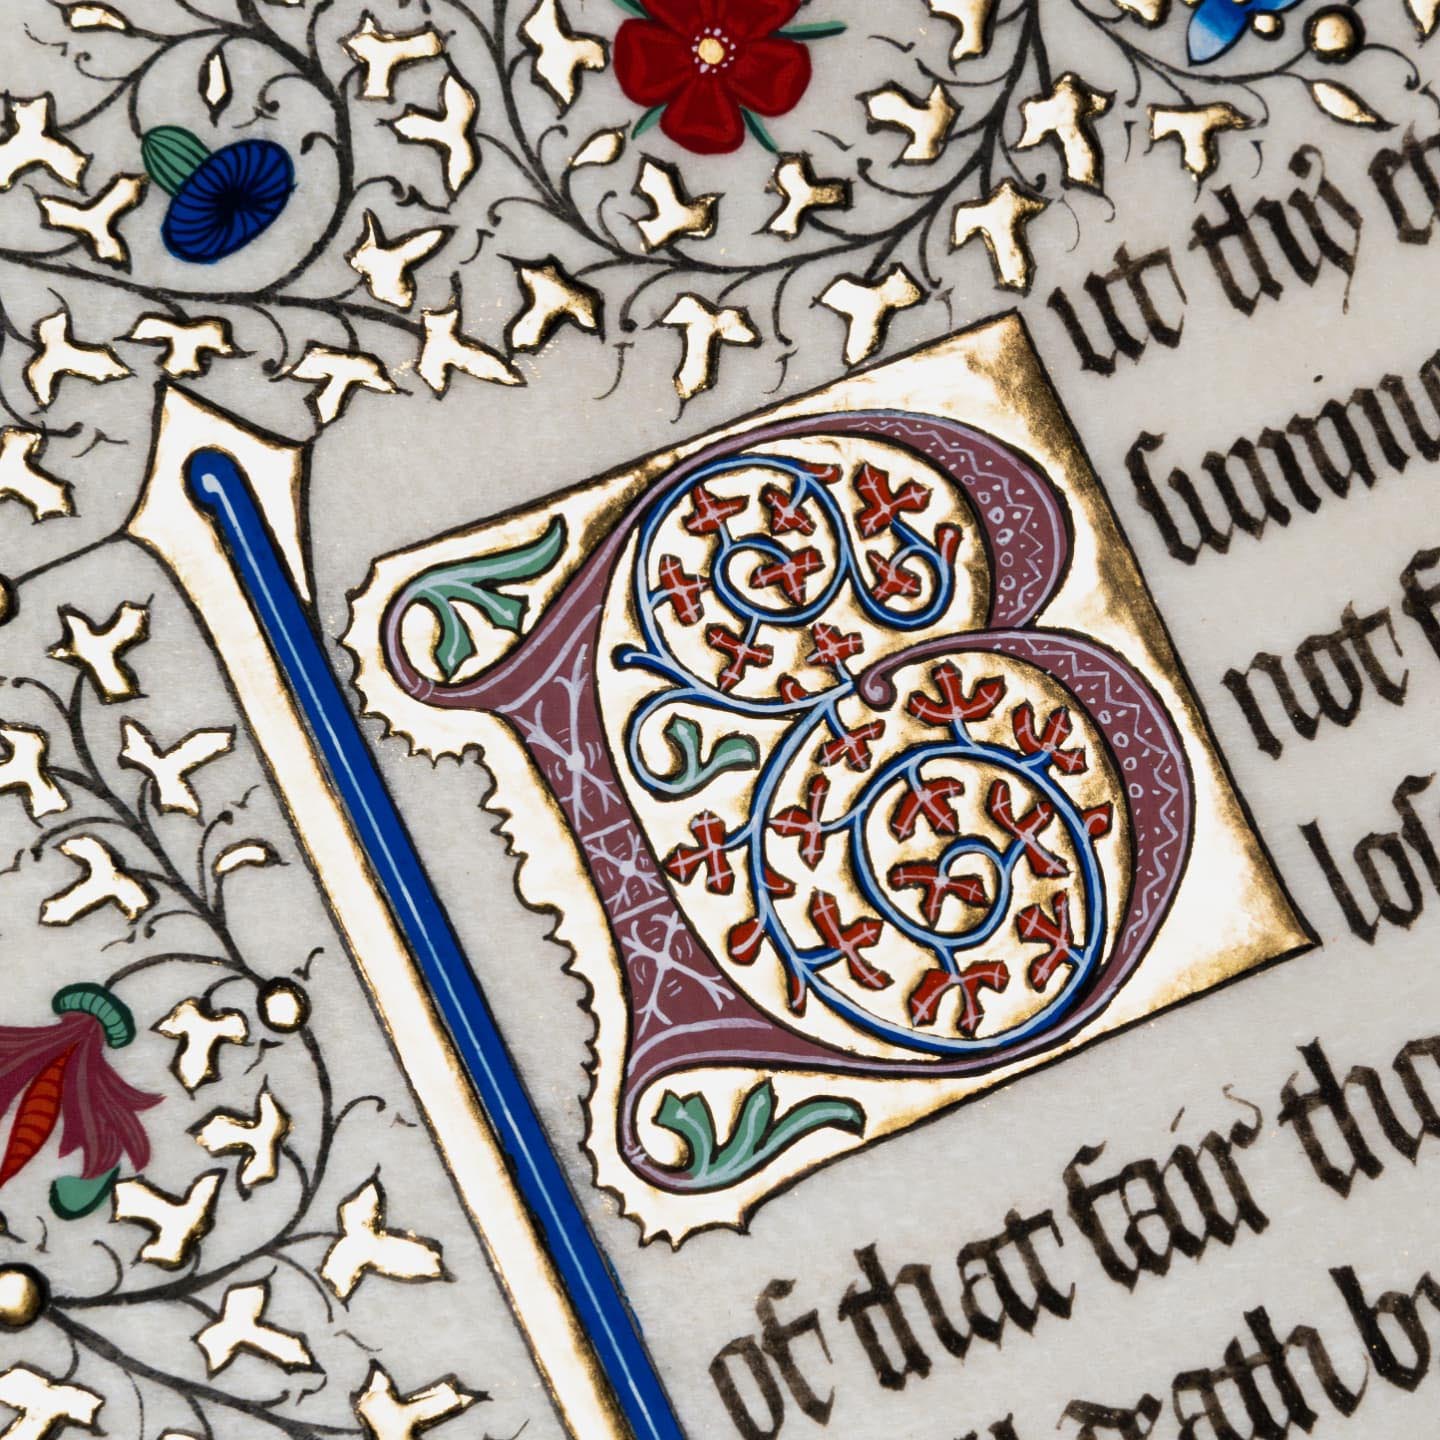 But thy e
summe
not f
los
of that fair tho
l death br